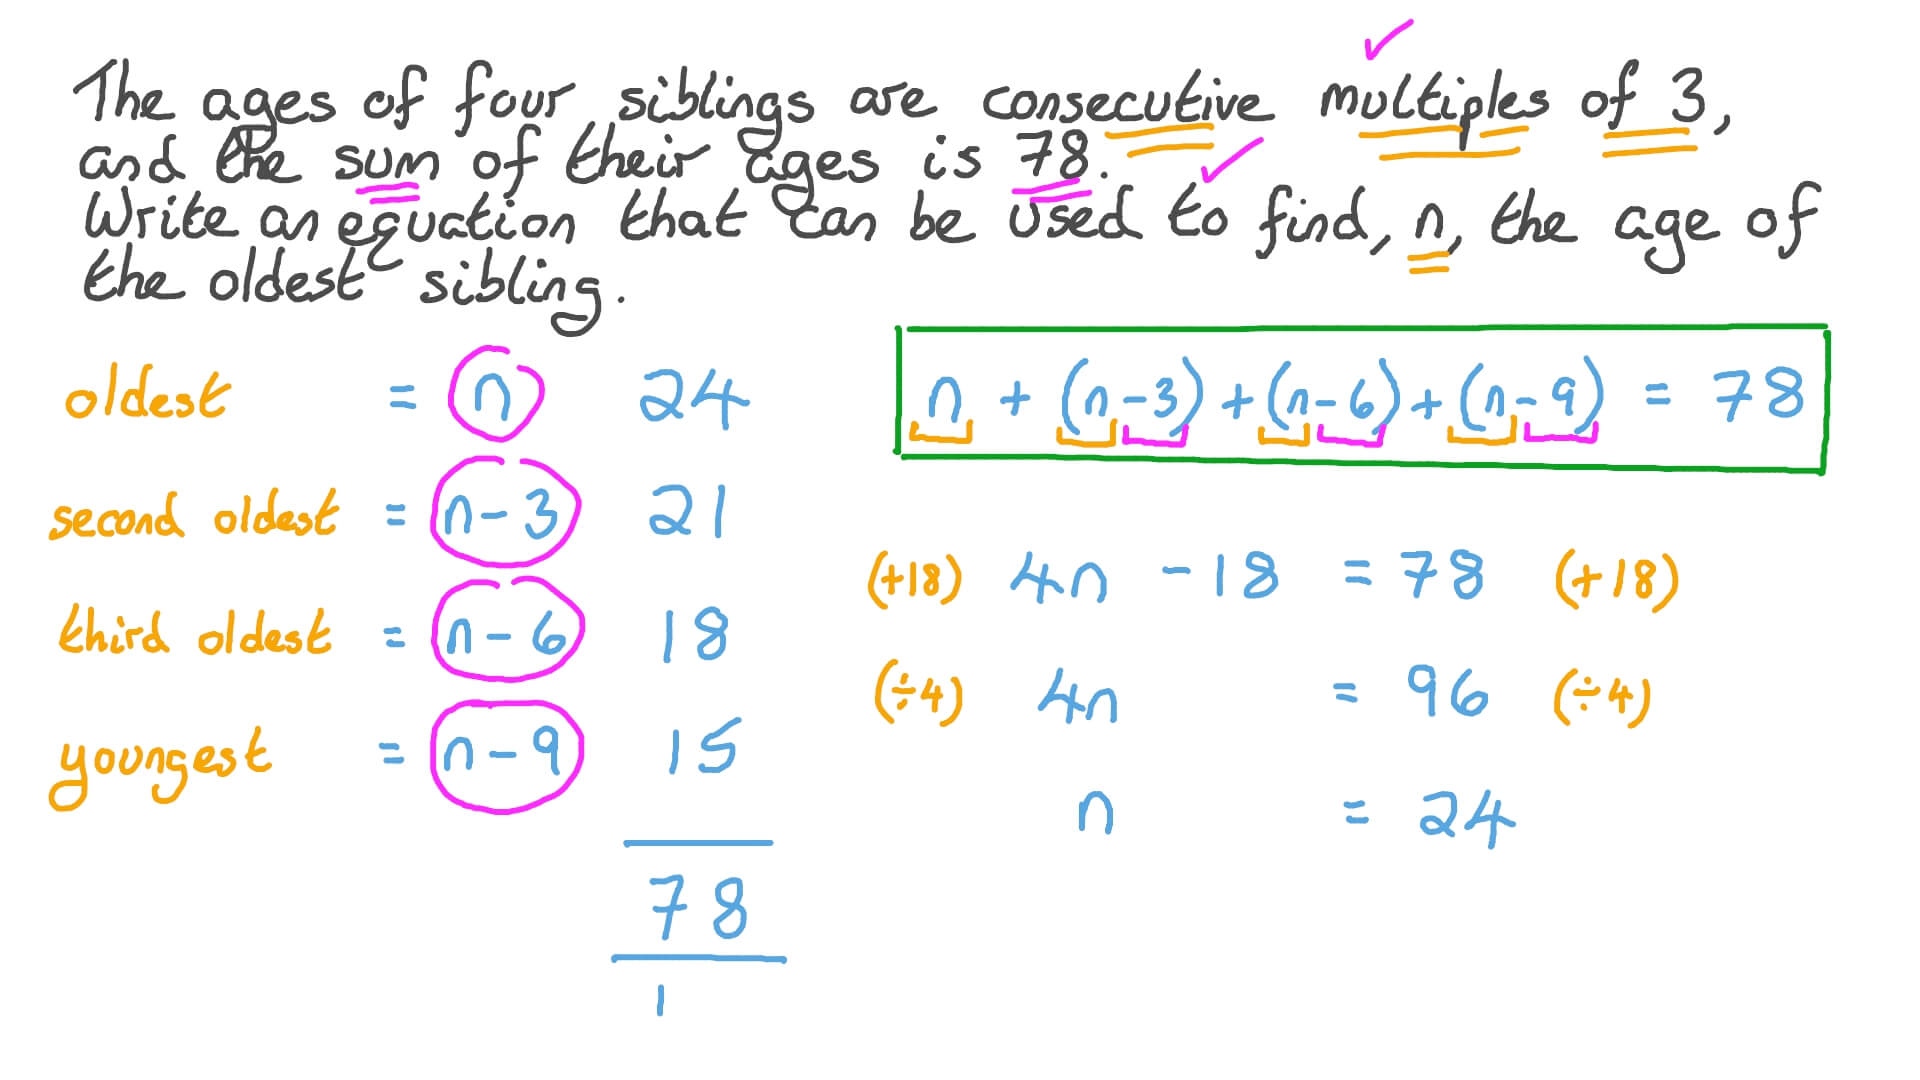 The ages of four siblings are consecutive multiples of 3,
and the sum of their ages is 78.
Write an equation that can be used to find, n, the age of
the oldest sibling.
oldest = n 24
second oldest = n-3 21
third oldest = n-6 18
youngest = n-9 15
78
1
n + (n-3) + (n-6) + (n-9) = 78
(+18) 4n -18 = 78 (+18)
(÷4) 4n = 96 (÷4)
n = 24